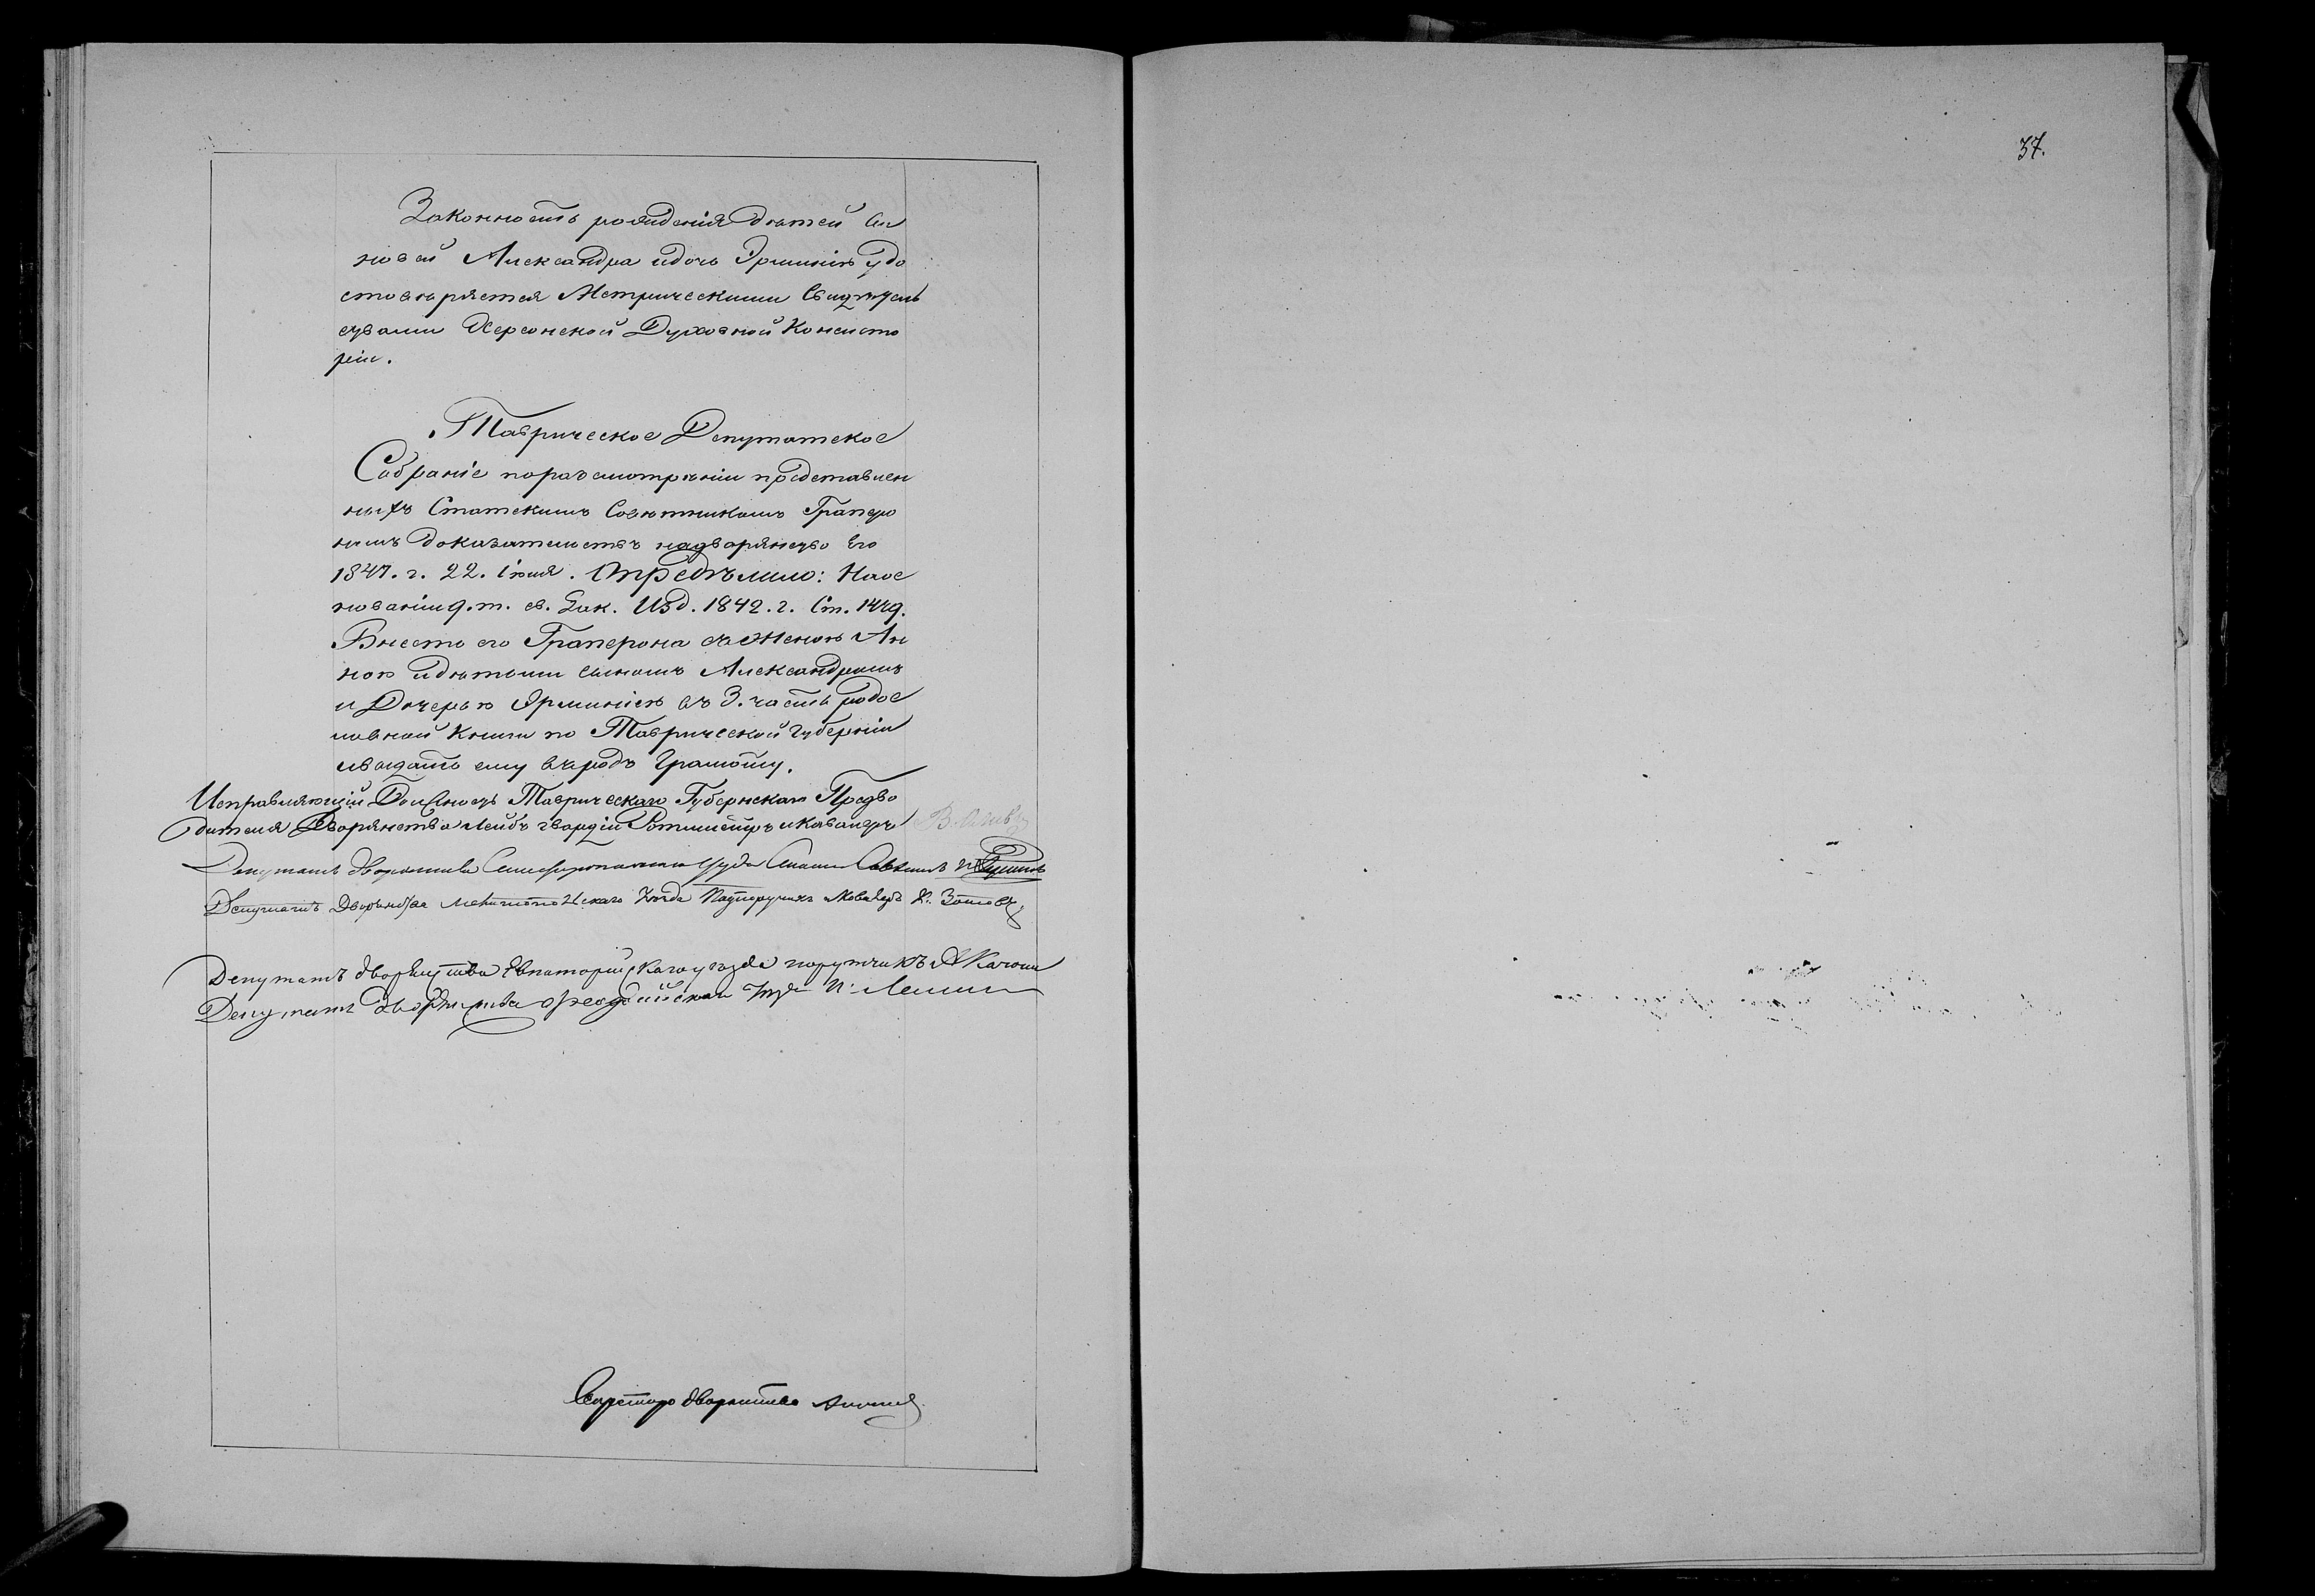 37.
Законность рожденія дѣтей Сы
новей Александра и дочь Эрминіи удо
стовѣряется Метрическими Свидѣтель
ствами Херсонской Духовной Консисто
ріи.
Таврическое Депутатское
Собраніе по разсмотрѣніи представлен
ныхъ Статскимъ Совѣтникомъ Граперо
номъ доказательствъ на дворянство Его
1847. г. 22. Іюня. Опредѣлило: На ос
нованіи 9. т. св. Зак. Изд. 1842. г. Ст. 1449.
Внести его Граперона съ Женою Ан
ною и дѣтьми сыномъ Александромъ
и Дочерью Эрминіею въ 3. часть родос
ловной Книги по Таврической Губерніи
и выдать ему въ родъ Грамоту.
Исправляющій Должность Таврическаго Губернскаго Предво
дителя Дворянства Лейбъ гвардіи Ротмистръ и Кавалеръ В. Олив
Депутатъ дворянства Симферопольскаго уѣзда
Депутатъ Дворянства Мелитопольскаго Уѣзда Подпоручикъ и Кавалеръ К. Зотовъ
Депутатъ дворянства Евпаторійскаго уѣзда поручикъ А Качони
Депутатъ Дворянства Ѳеодосійскаго Уѣзда
Секретарь дворянства